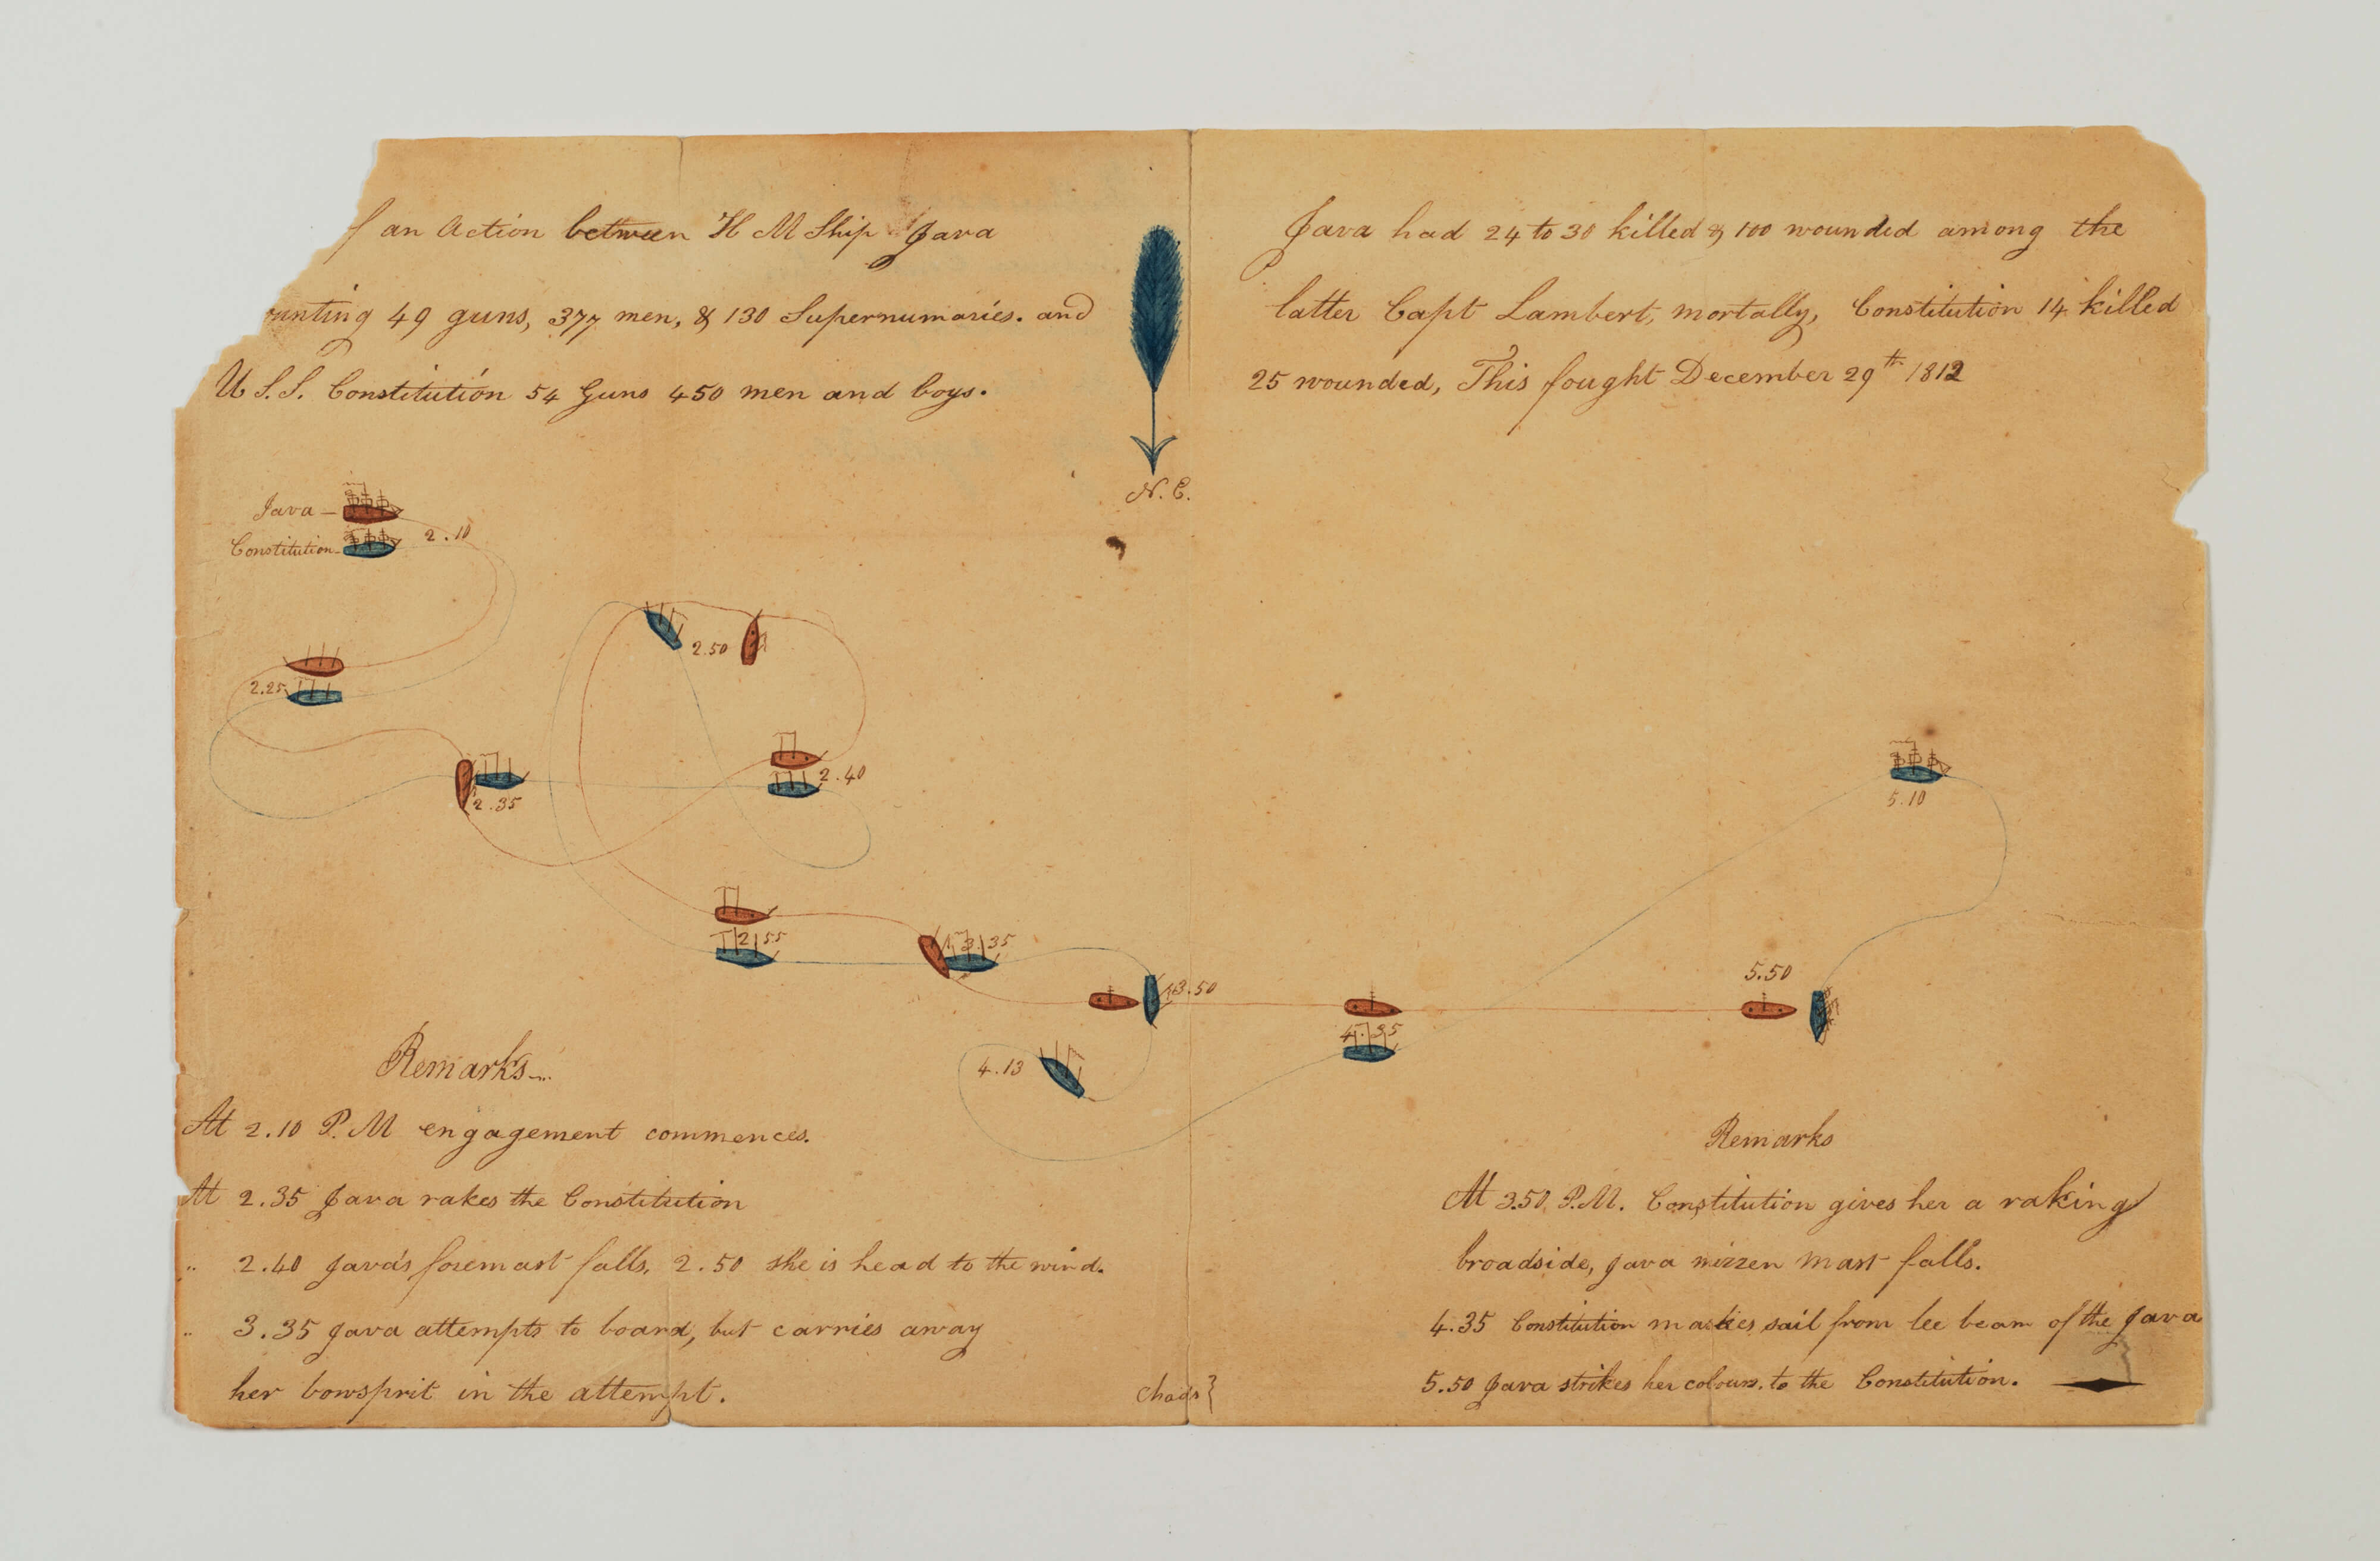 f an Action between H M Ship Java
unting 49 guns, 377 men, & 130 Supernumaries. and
U S.S. Constitution 54 Guns 450 men and boys.
N. E.
Java had 24 to 30 killed & 100 wounded among the
latter Capt Lambert, mortally, Constitution 14 killed
25 wounded, This fought December 29th 1812
Java –
Constitution
2.10
2.25
2.35
2.50
2.40
2.55
3.35
3.50
4.13
4.35
5.10
5.50
Remarks
At 2.10 P.M engagement commences.
At 2.35 Java rakes the Constitution
" 2.40 Java's foremast falls, 2.50 she is head to the wind.
" 3.35 Java attempts to board, but carries away
her bowsprit in the attempt.
Chads}
Remarks
At 3.50. P.M. Constitution gives her a raking
broadside, Java mizzen mast falls.
4.35 Constitution makes sail from lee beam of the Java
5.50 Java strikes her colours. to the Constitution.